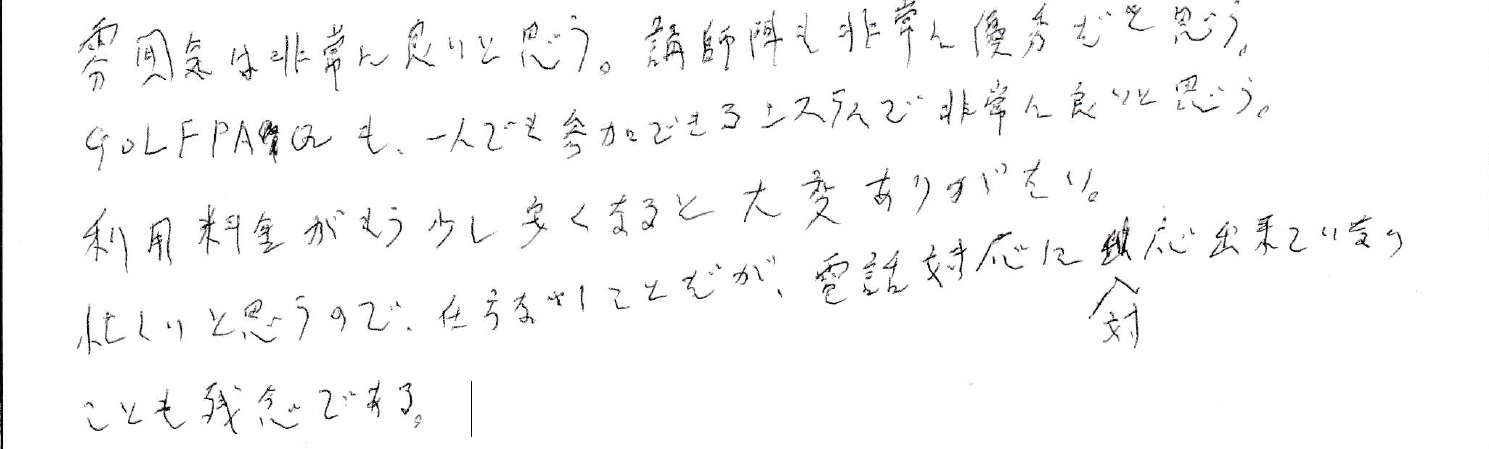 雰囲気は非常に良いと思う。講師陣も非常に優秀だと思う。
GOLFPARも、一人でも参加できるシステムで非常に良いと思う。
利用料金がもう少し安くなると大変ありがたい。
忙しいと思うので、仕方ないことだが、電話対応に対応出来ていない
ことも残念である。